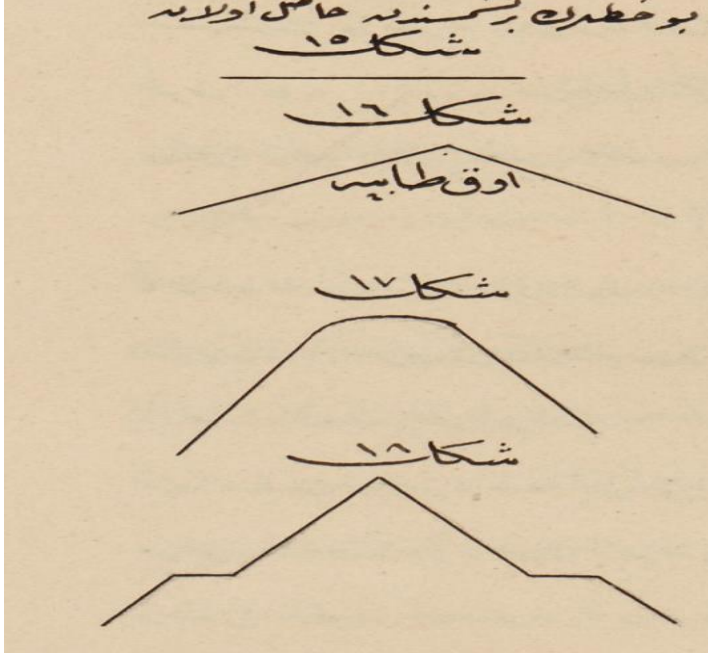 بو خطلرك برلشمسندن حاصل اولان
شكل ١٥
شكل ١٦
اوق طابيه
شكل ١٧
شكل ١٨